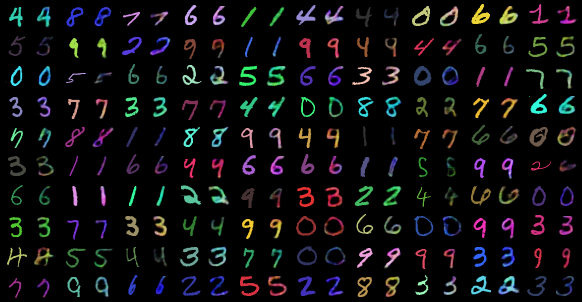 4 4 8 8 7 7 6 6 1 1 4 4 4 4 0 0 6 6 1 1
5 5 9 9 2 2 9 9 1 1 9 9 9 9 4 4 6 6 5 5
0 0 5 5 6 6 2 2 5 5 6 6 3 3 0 0 1 1 7 7
3 3 7 7 3 3 7 7 4 4 0 0 8 8 2 2 7 7 6 6
7 7 8 8 1 1 8 8 9 9 4 4 1 1 7 7 6 6 0 0
3 3 1 1 6 6 9 9 6 6 6 6 1 1 5 5 9 9 2 2
6 6 1 1 1 1 2 2 9 9 3 3 2 2 4 4 6 6 0 0
3 3 7 7 3 3 4 4 9 9 0 0 6 6 0 0 9 9 3 3
4 8 5 5 4 4 3 3 7 7 0 0 9 9 9 9 3 3 9 9
7 7 9 9 6 6 2 2 5 5 2 2 8 8 3 3 2 2 3 3